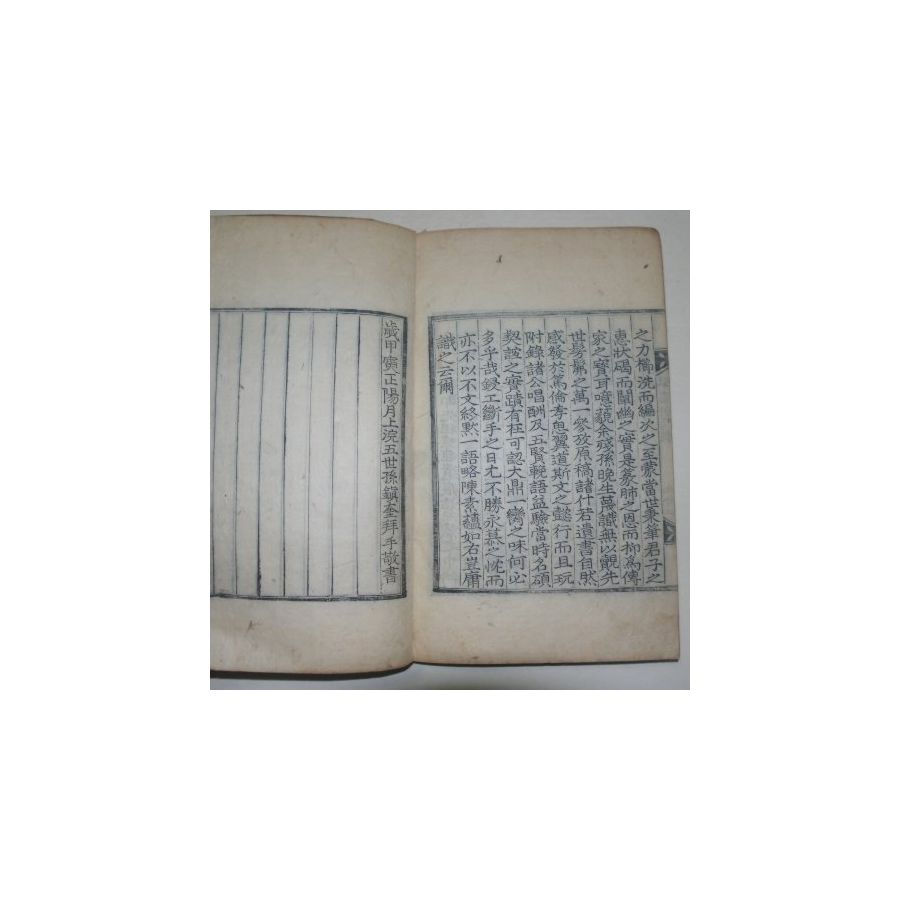 之力檇洗而編次之至蒙當世秉筆君子之
惠狀碣而闡幽之實是篆肺之恩而抑爲傳
家之寶耳噫藐余殘孫晚生蔑識無以覩先
世髣髴之萬一參攷原稿諸什若遺書自然
感發於篤倫孝愚翼道斯文之懿行而且玩
附錄諸公唱酬及五賢輓語益驗當時名碩
契誼之實蹟有在可認大鼎一臠之味何必
多乎哉鋟工斷手之日尤不勝永慕之忱而
亦不以不文終默一語略陳素蘊如右豈庸
識之云爾
歲甲寅正陽月上浣五世孫鎭奎拜手敬書